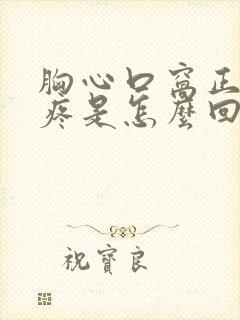 胸心口窝正
疼是怎麼回
祝寶良